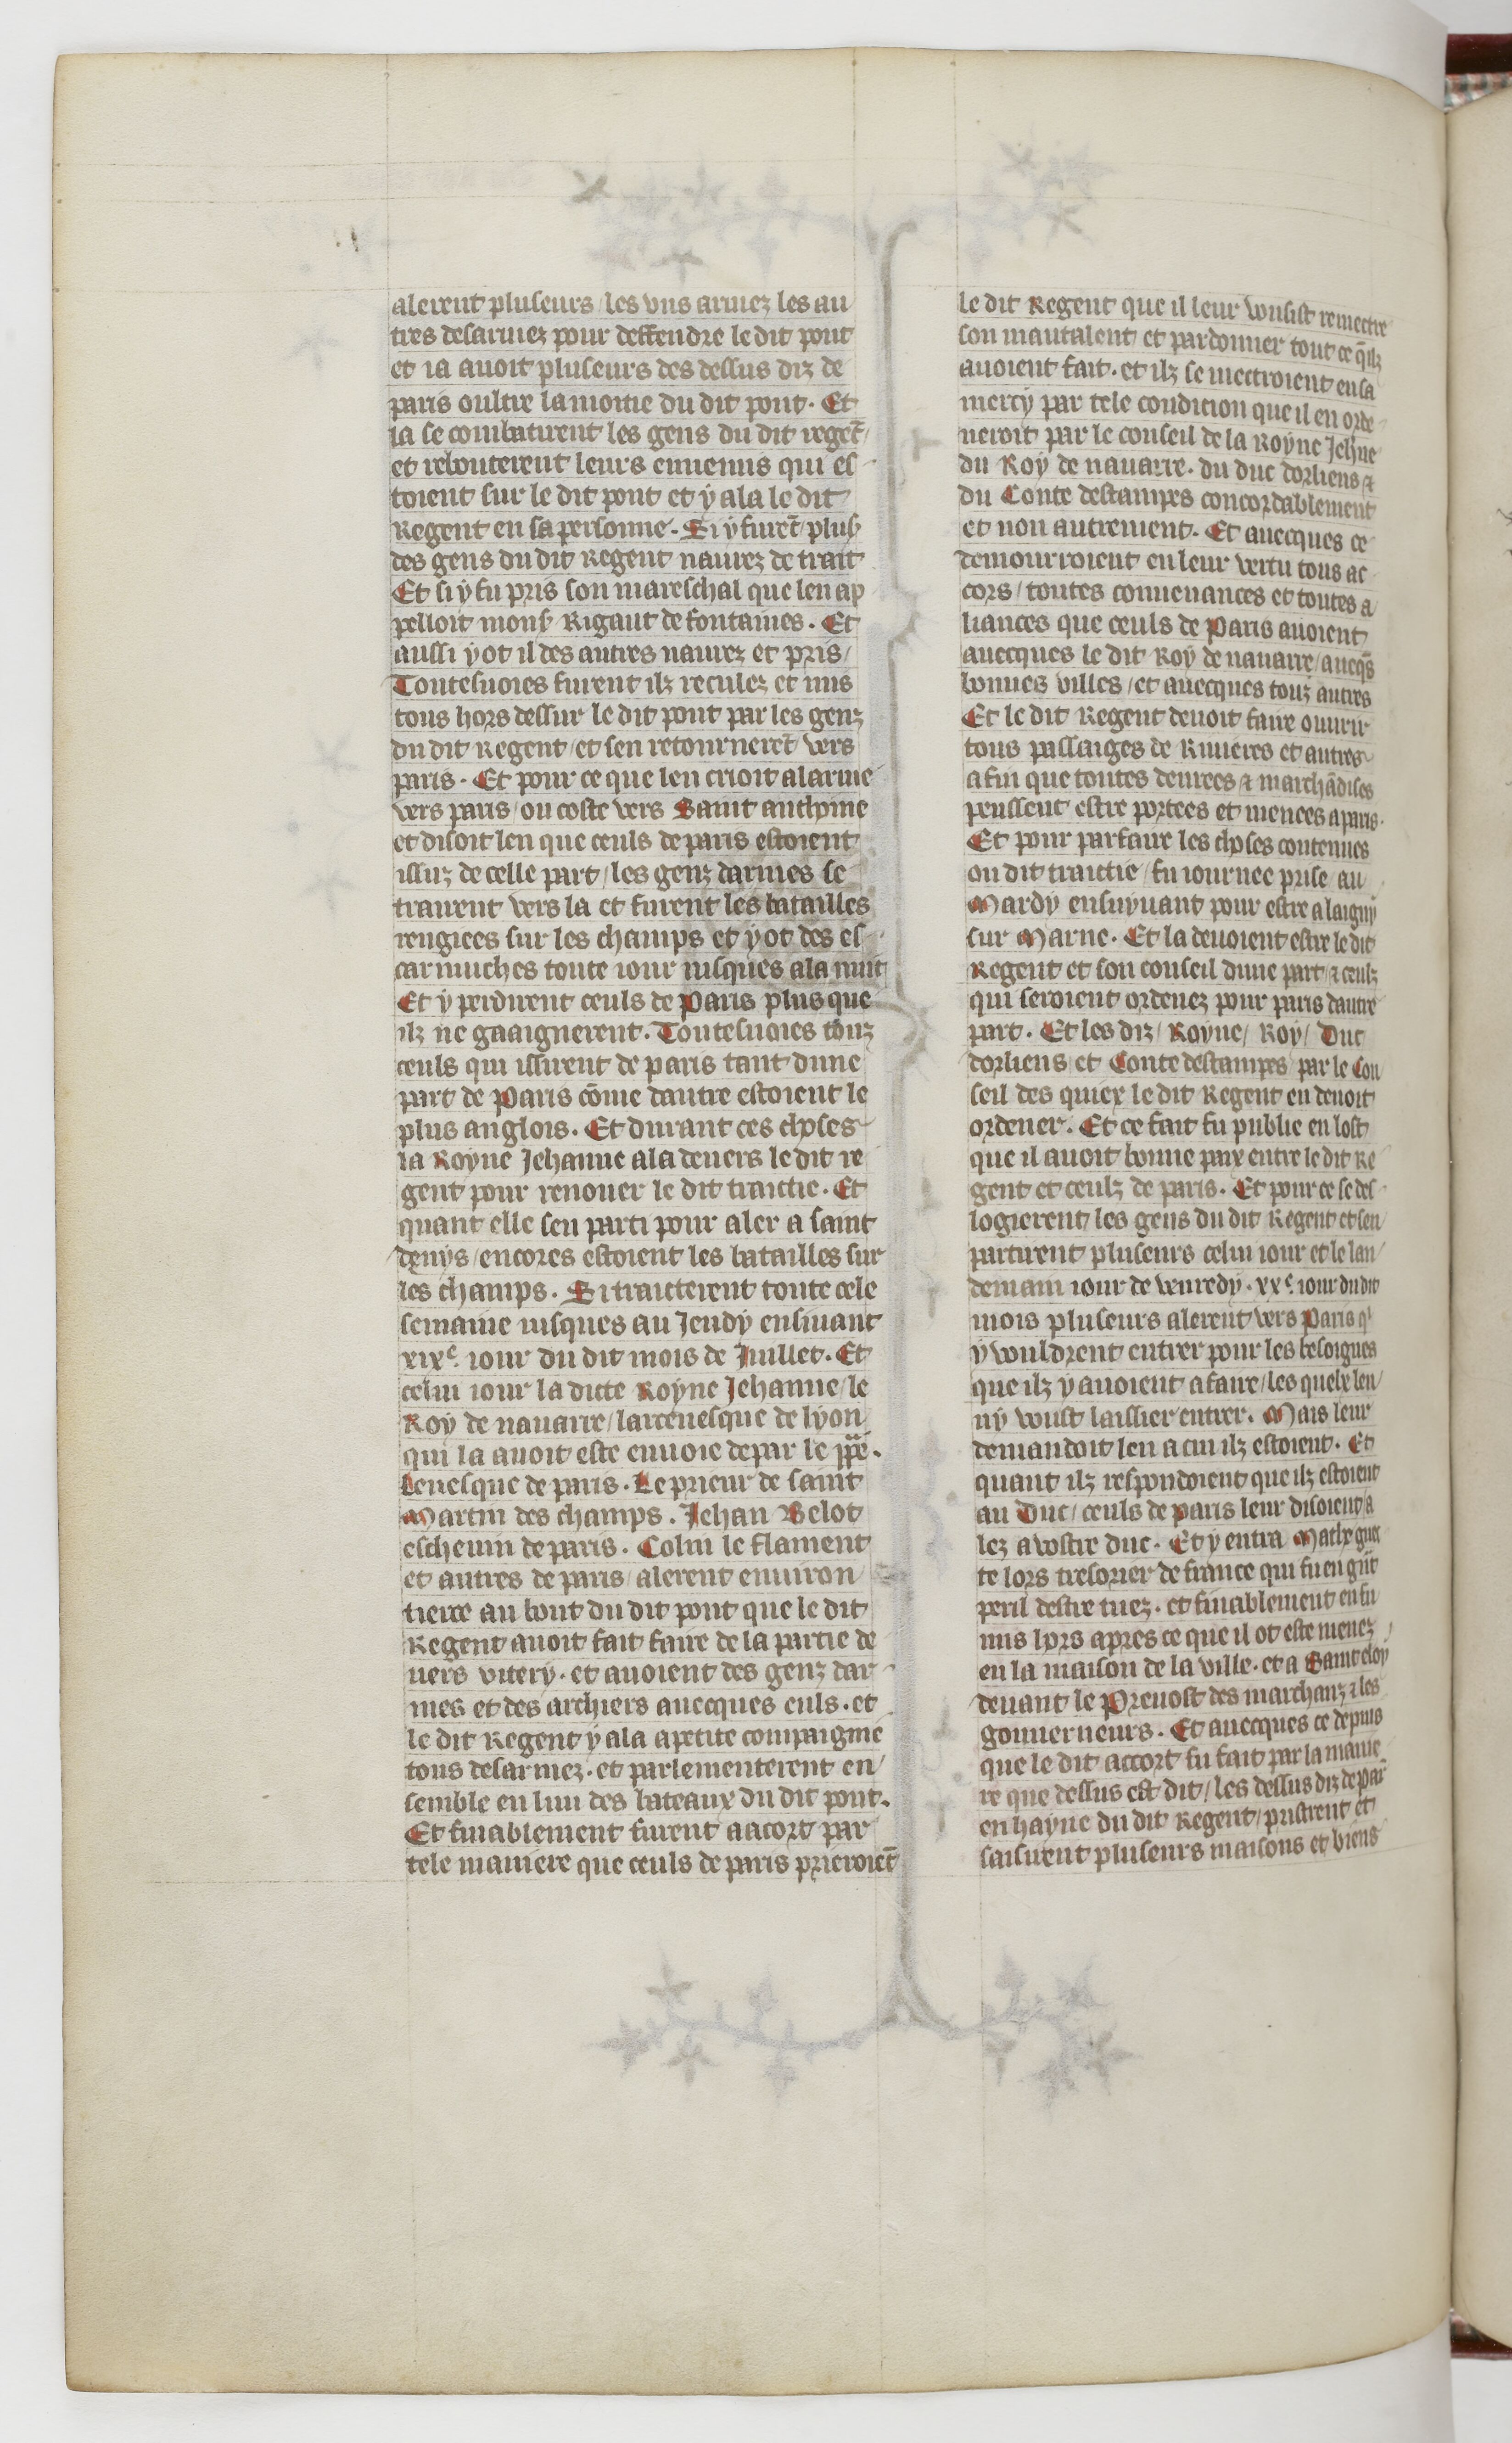 alerent pluseurs / les vns armez les au
tres desarmez pour deffendre le dit pont
et ia auoit pluseurs des dessus diz de
paris oultre la moitie du dit pont. Et
la se combatirent les gens du dit regēt /
et rebouterent leurs ennemis qui es
toient sur le dit pont et y ala le dit
Regent en sa personne. Si y furēt plus̄
des gens du dit Regent naurez de trait
Et si y fu pris son mareschal que len ap
pelloit mons̄ Rigaut de fontaines. Et
aussi y ot il des autres naurez et pris /
Toutesuoies furent ilz reculez et mis
tous hors dessur le dit pont par les genz
du dit Regent / et sen retournerēt vers
paris. Et pour ce que len crioit alarme
vers paris / ou coste vers Saint anthoine
et disoit len que ceuls de paris estoient
issuz de celle part / les genz darmes se
trairent vers la et furent les batailles
rengiees sur les champs et y ot des es
carmuches toute iour iusques a la nuit
Et y perdirent ceuls de Paris plus que
ilz ne gaaignerent. Toutesuoies touz
ceuls qui issirent de paris tant dune
part de Paris cōme dautre estoient le
plus anglois. Et durant ces choses
la Royne Jehanne ala deuers le dit re
gent pour renouer le dit traictie. Et
quant elle sen parti pour aler a saint
denys / encores estoient les batailles sur
les champs. Si traicterent toute cele
semaine iusques au Jeudy ensiuant
xixe. iour du dit mois de Juillet. Et
celui iour la dicte Royne Jehanne / le
Roy de nauarre / larceuesque de lyon
qui la auoit este enuoie depar le pp̄e.
Leuesque de paris. Le prieur de saint
Martin des champs. Jehan Belot
escheuin de paris. Colin le flament
et autres de paris / alerent enuiron
tierce au bout du dit pont que le dit
Regent auoit fait faire de la partie de
uers vitery. et auoient des genz dar
mes et des archiers auecques euls. et
le dit Regent y ala a petite compaignie
tous desarmez. et parlementerent en
semble en lun des bateaux du dit pont.
Et finablement furent a acort par
tele maniere que ceuls de paris prieroiēt
le dit Regent que il leur voulsist remectre
son mautalent et pardonner tout ce q̄ilz
auoient fait. et ilz se mectroient en sa
mercy par tele condicion que il en orde
neroit par le conseil de la Royne Jehn̄e
du Roy de nauarre. du duc dorliens &
du Conte destampes concordablement
et non autrement. Et auecques ce
demourroient en leur vertu tous ac
cors / toutes conuenances et toutes a
liances que ceuls de Paris auoient
auecques le dit Roy de nauarre / aueqs̄
bonnes villes / et auecques touz autres
Et le dit Regent deuoit faire ouurir
tous passaiges de Riuieres et autres
afin que toutes denrees & marchādises
peussent estre portees et menees a paris.
Et pour parfaire les choses contenues
ou dit traictie / fu iournee prise au
Mardy ensuyuant pour estre a laigny
sur Marne. Et la deuoient estre le dit
Regent et son conseil dune part / & ceulz
qui seroient ordenez pour paris dautre
part. Et les diz / Royne / Roy / Duc
dorliens et Conte destampes par le Con
seil des quiex le dit Regent en deuoit
ordener. Et ce fait fu publie en lost
que il auoit bonne paix entre le dit Re
gent et ceulz de paris. Et pour ce se des
logierent les gens du dit Regent et sen
partirent pluseurs celui iour et le lan
demain iour de venredy. xxe. iour du dit
mois pluseurs alerent vers Paris qi
y vouldrent entrer pour les besoignes
que ilz y auoient a faire / les quelx len
ny voult laissier entrer. Mais leur
demandoit len a cui ilz estoient. Et
quant ilz respondoient que ilz estoient
au Duc / ceuls de paris leur disoient / a
lez a vostre duc. Et y entra Mathe guet
te lors tresorier de france qui fu en gn̄t
peril destre tuez. et finablement en fu
mis hors apres ce que il ot este menez
en la maison de la ville. et a Saint eloy
deuant le Preuost des marchanz & les
gouuerneurs. Et auecques ce depuis
que le dit accort fu fait par la manie
re que dessus est dit / les dessus diz de par
en hayne du dit Regent / pristrent et
saisirent pluseurs maisons et biens